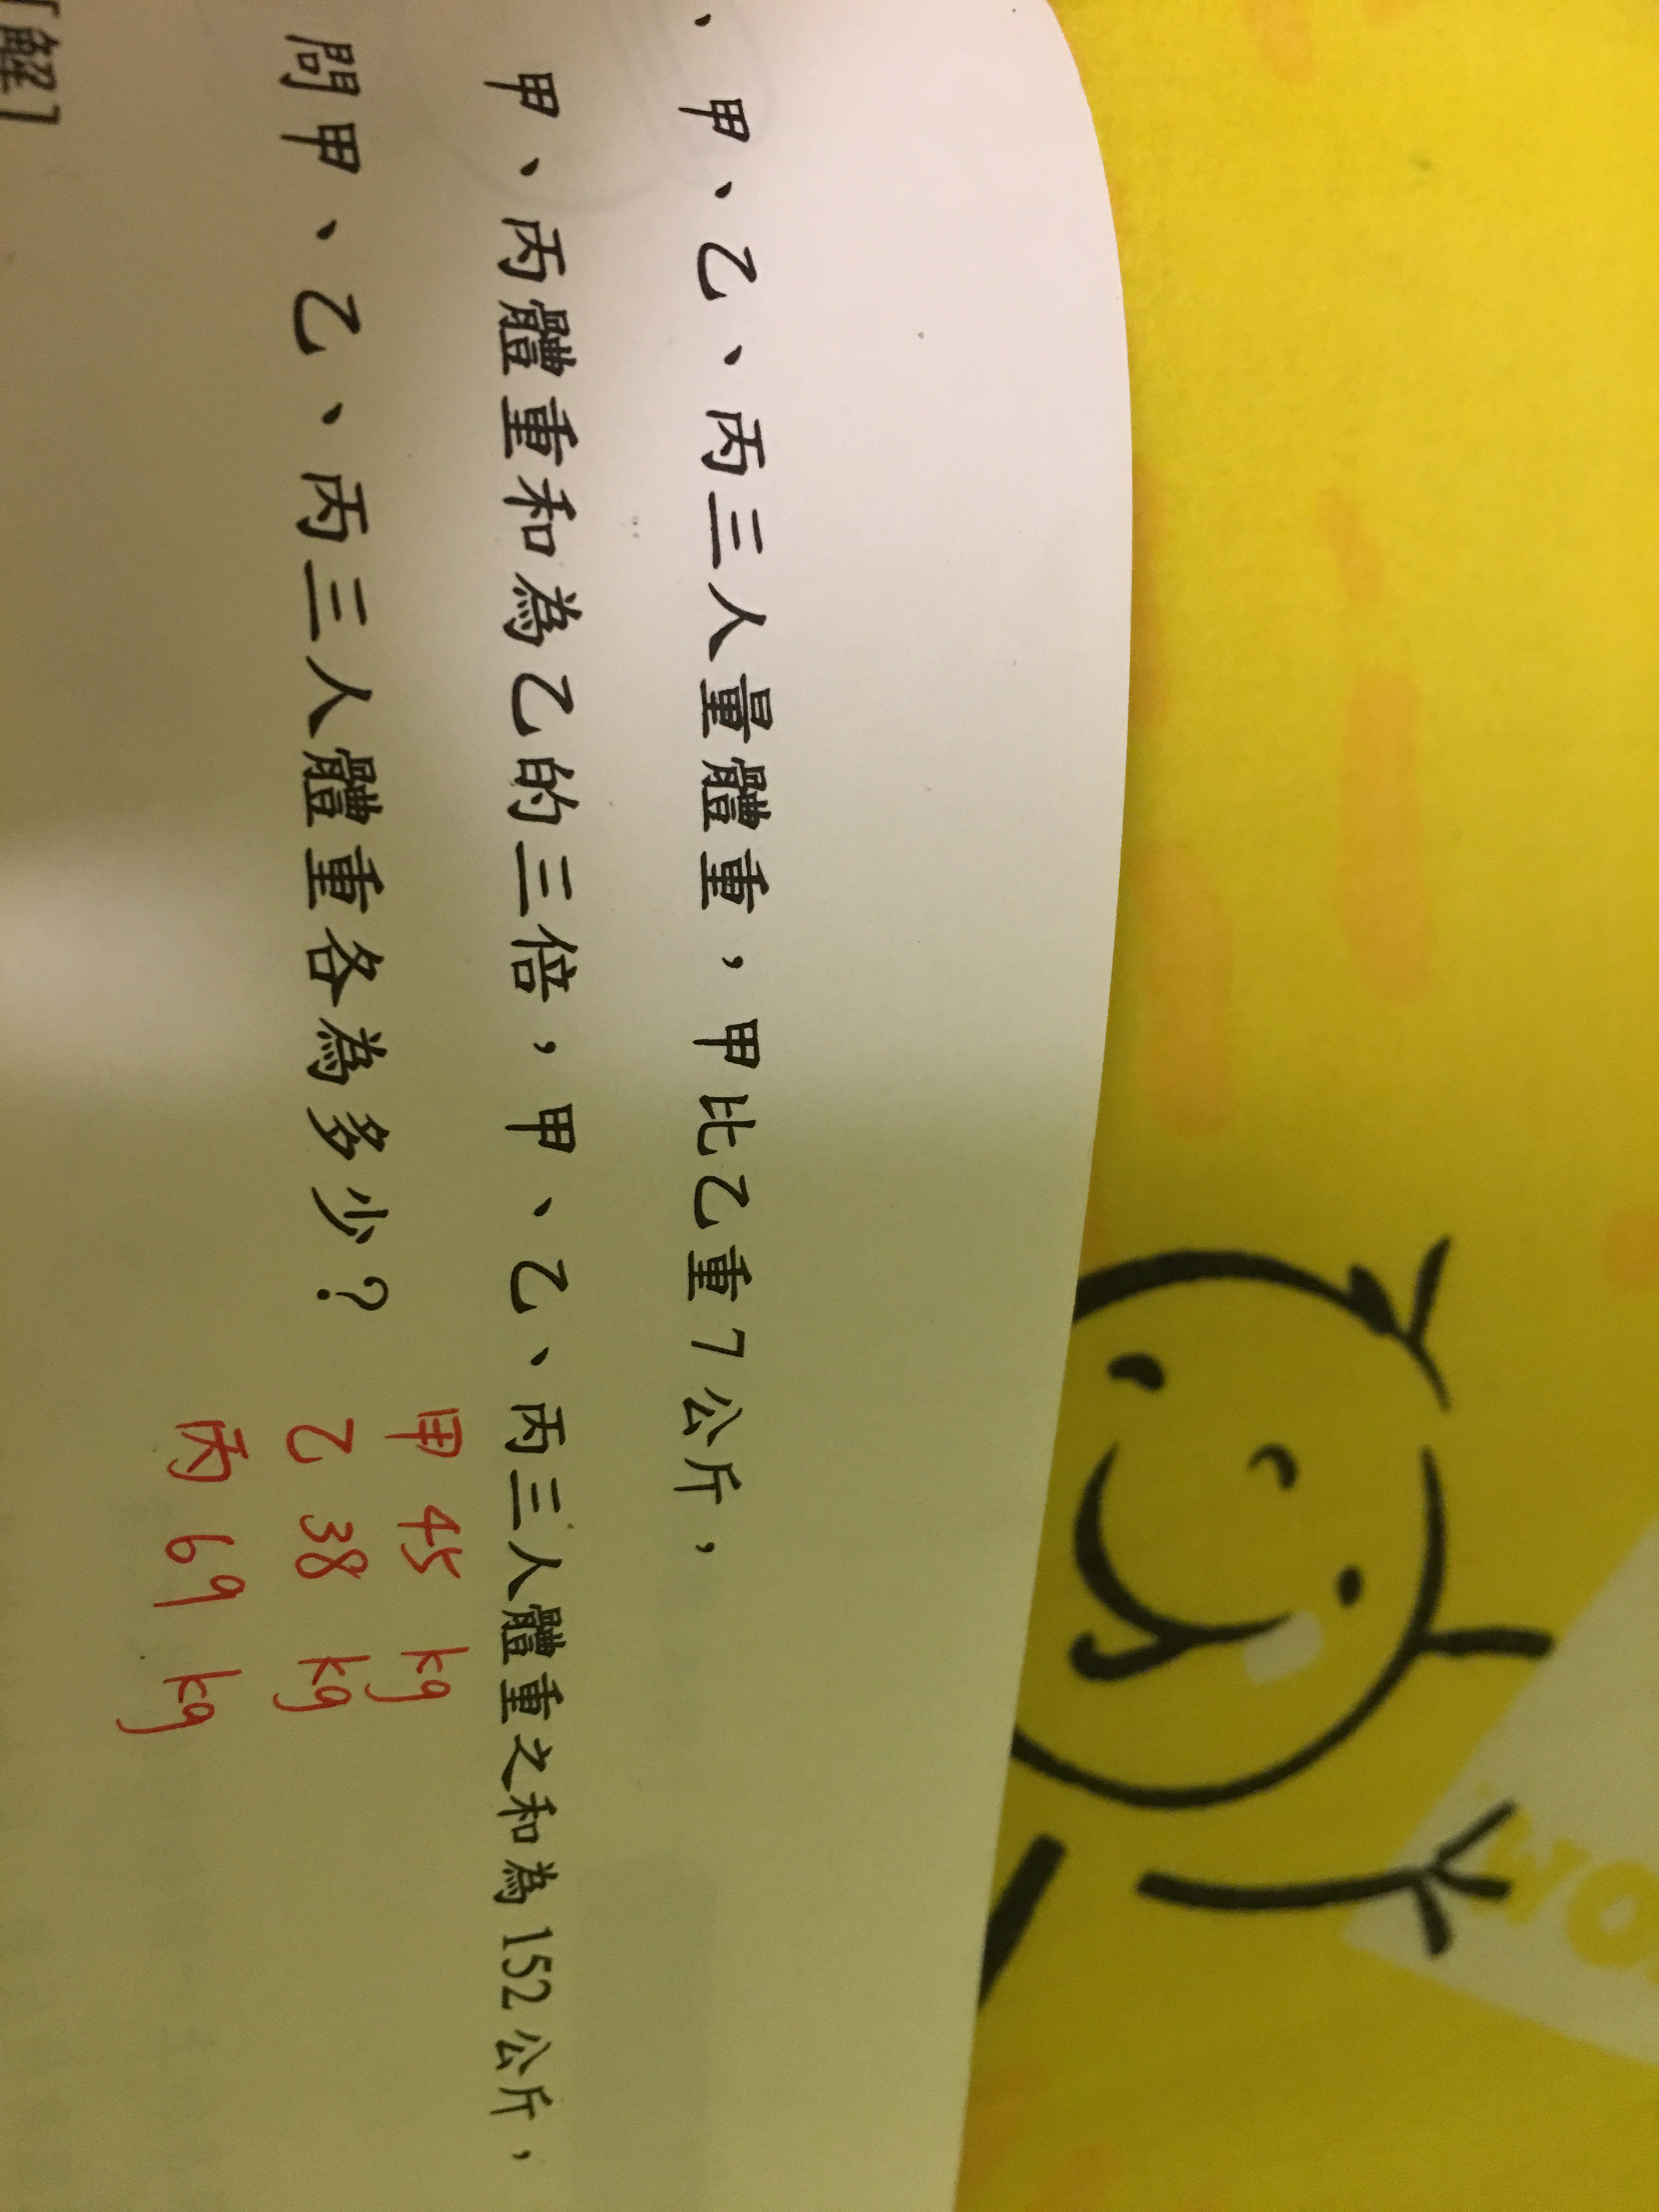 、甲、乙、丙三人量體重，甲比乙重7公斤，
甲、丙體重和為乙的三倍，甲、乙、丙三人體重之和為152公斤，
問甲、乙、丙三人體重各為多少？
甲 45 kg
乙 38 kg
丙 69 kg
[解]